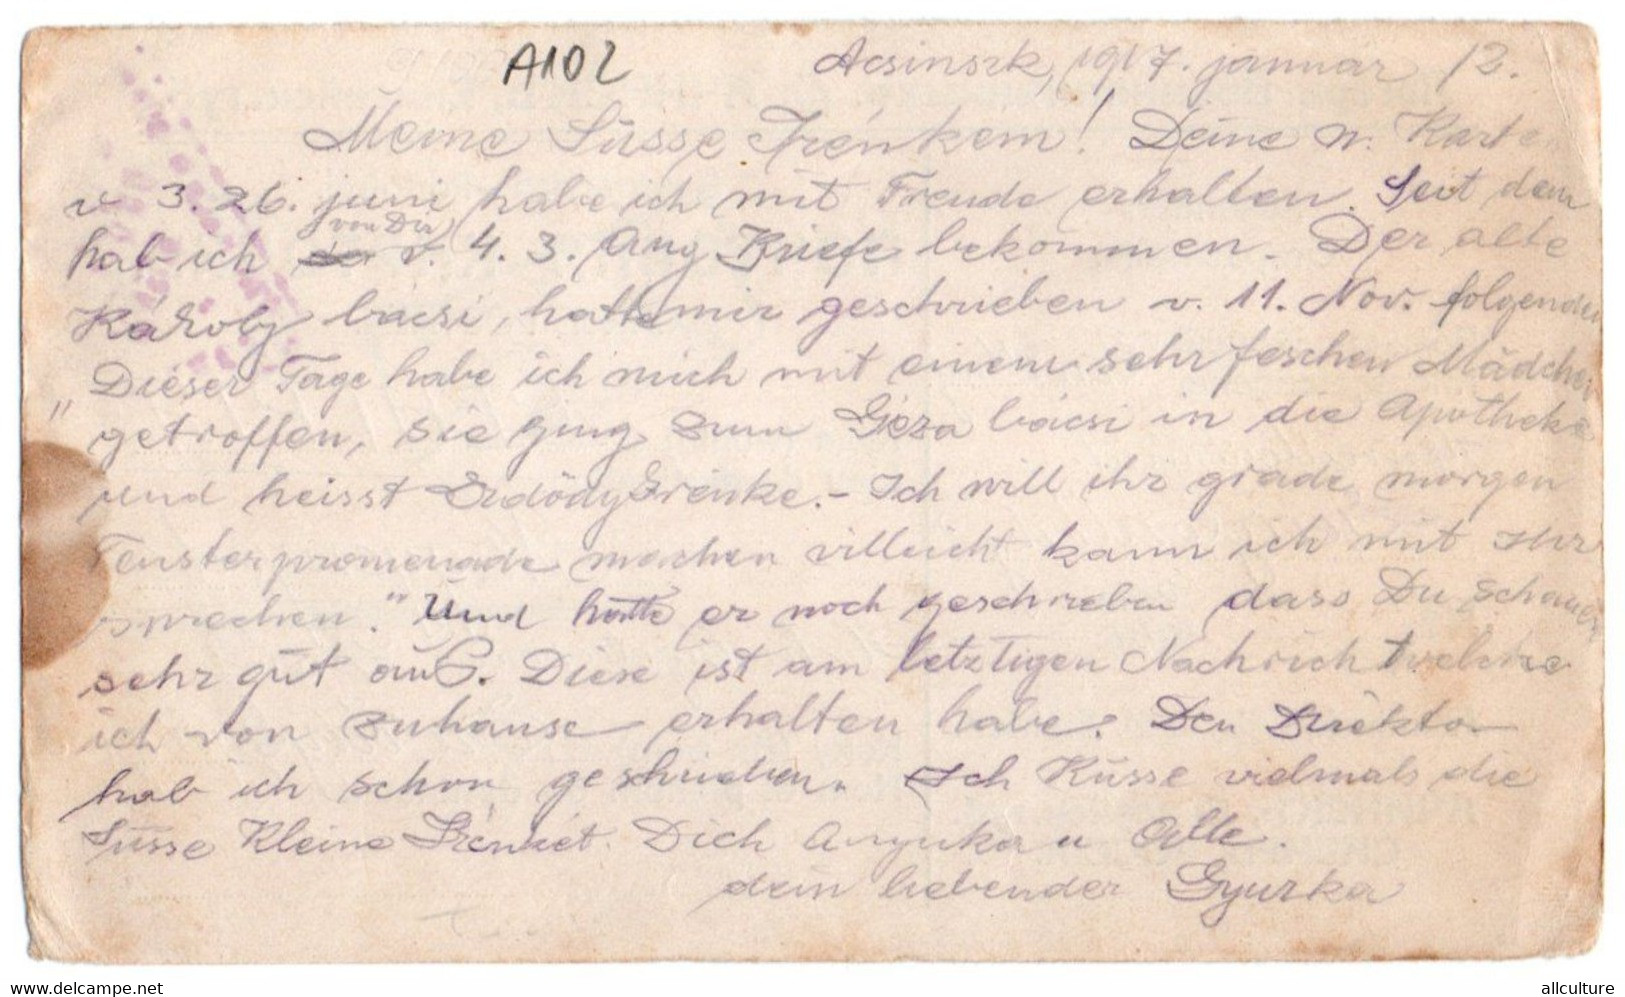 A102
Acsinszk, 1917. januar 12.
Meine Süsse Irénkem! Deine n. Karte
v 3. 26. juni habe ich mit Freude erhalten. Seit dem
von Dir
hab ich v. 4. 3. Aug Briefe bekommen. Der alte
Károly bácsi, hatte mir geschrieben v. 11. Nov. folgendes
„Dieser Tage habe ich mich mit einem sehr feschen Mädchen
getroffen, sie ging zum Géza bácsi in die Apotheke
und heisst Erdödy Irénke. - Ich will ihr grade morgen
Fensterpromenade machen villeicht kann ich mit Ihr
sprechen." Und hatte er noch geschrieben dass Du schauen
sehr gut aus. Diese ist am letztigen Nachricht welche
ich von zuhause erhalten habe. Den Direktor
hab ich schon geschrieben. Ich Küsse vielmals die
Süsse Kleine Irénkét. Dich Anyuka u Alle.
dein liebender Gyurka
www.delcampe.net
allculture